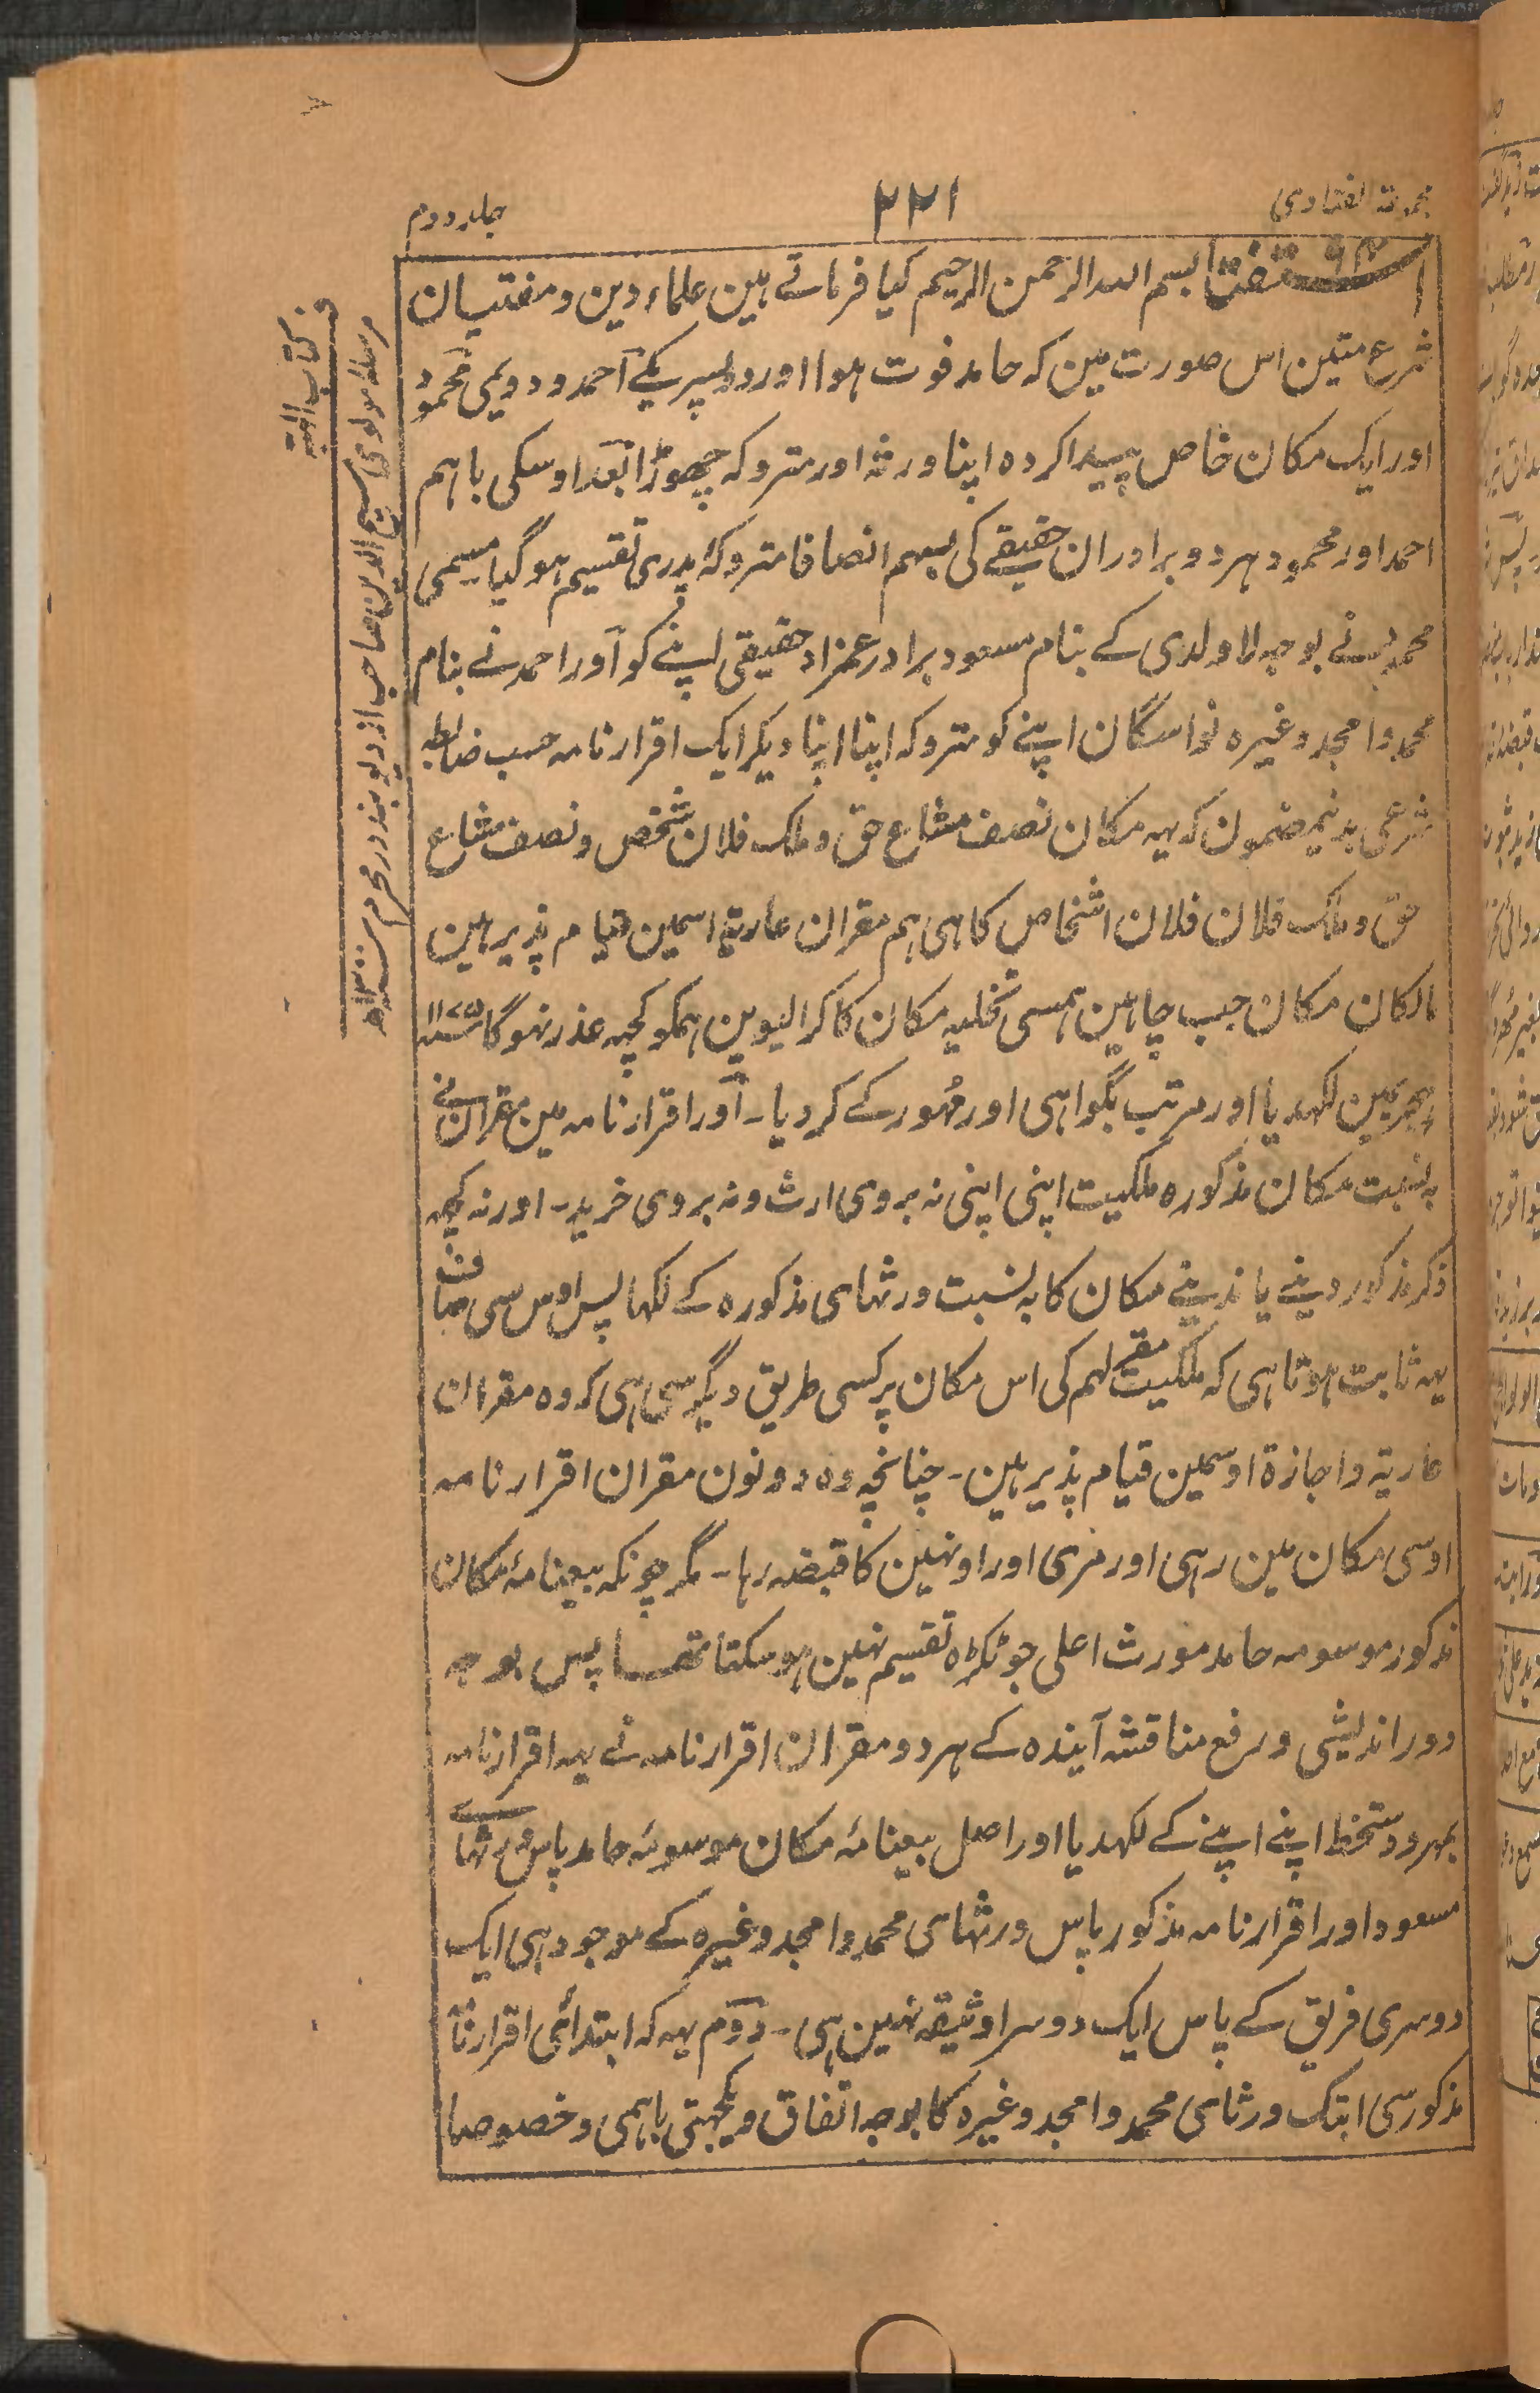 مجموعۃ الفتاوی
۲۲۱
جلد دوم
استفتا ۹۳ بسم اللہ الرحمن الرحیم کیا فرماتے ہین علماء دین و مفتیان
شرع متین اس صورت مین کہ حامد فوت ہوا اور دو پسر یکے احمد و دویمی محمود
اور ایک مکان خاص پیدا کردہ اپنا ورثہ اور متروکہ چھوڑا بعد اوسکی باہم
احمد اور محمود ہر دو برادران حقیقے کی بسہم انصافا متروکۂ پدری تقسیم ہو گیا مسیمی
محمود نے بوجہ لاولدی کے بنام مسعود برادر عمزاد حقیقی اپنے کو اور احمد نے بنام
محمد و امجد وغیرہ نواسگان اپنے کو متروکہ اپنا اپنا دیکر ایک اقرار نامہ حسب ضابطہ
شرعی بدینمضمون کہ یہہ مکان نصف مشاع حق و ملک فلان شخص و نصف مشاع
حق و ملک فلان فلان اشخاص کا ہی ہم مقران عاریتہ اسمین قیام پذیر ہین
مالکان مکان جب چاہین ہمسی تخلیہ مکان کا کرالیوین ہمکو کچھہ عذر نہوگا ۱۱۷۵
ہجریمین لکھدیا اور مرتب بگواہی اور مُہور کے کردیا۔ اور اقرار نامہ مین مقران نے
بہ نسبت مکان مذکورہ ملکیت اپنی اپنی نہ بروی ارث و نہ بروی خرید۔ اور نہ کچھہ
ذکر مذکور دینے یا ندینے مکان کا بہ نسبت ورثہای مذکورہ کے لکھا پس اوس سی صاف
یہہ ثابت ہوتا ہی کہ ملکیت مقر لہم کی اس مکان پر کسی طریق دیگر سی ہی کہ وہ مقران
عاریۃ و اجازۃ اوسمین قیام پذیر ہین۔ چنانچہ وہ دونون مقران اقرار نامہ
اوسی مکان مین رہی اور مری اور اونہین کا قبضہ رہا۔ مگر چونکہ بیعنامۂ مکان
مذکور موسومہ حامد مورث اعلی جو ٹکڑہ تقسیم نہین ہو سکتا تھا پس بوجہ
دور اندیشی و رفع مناقشہ آیندہ کے ہر دو مقران اقرار نامہ نے یہہ اقرار نامہ
بمہر و دستخط اپنے اپنے کے لکھدیا اور اصل بیعنامۂ مکان موسومۂ حامد پاس ورثہای
مسعود اور اقرار نامہ مذکور پاس ورثہای محمد و امجد وغیرہ کے موجود ہی ایک
دوسری فریق کے پاس ایک دوسرا وثیقہ نہین ہی۔ دوم یہہ کہ ابتدائی اقرار نامہ
مذکور سی ابتک ورثای محمد و امجد وغیرہ کا بوجہ اتفاق و یکجہتی باہمی و خصوصا
ف کتاب الہبہ
مرسلہ مولوی سمیع الدین صاحب از دیوبند در محرم